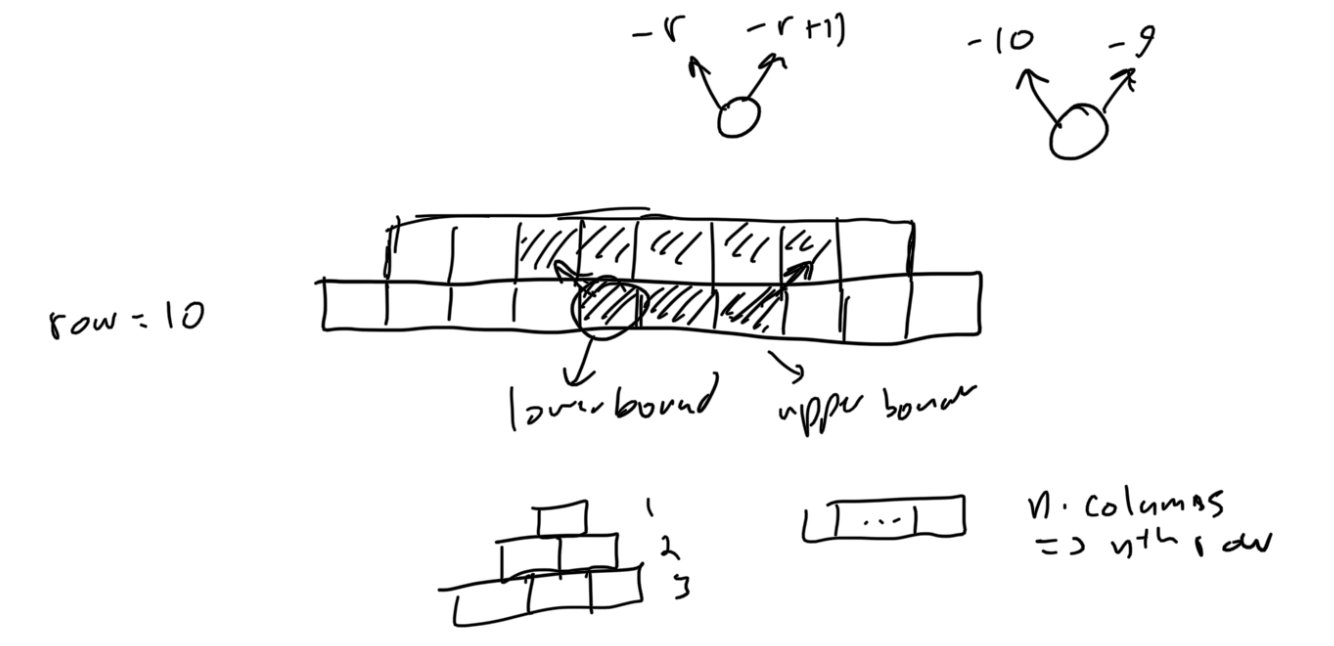 -r -r+1)
-10 -9
row = 10
lower bound
upper bound
1
2
3
...
n. columns
=> nth row